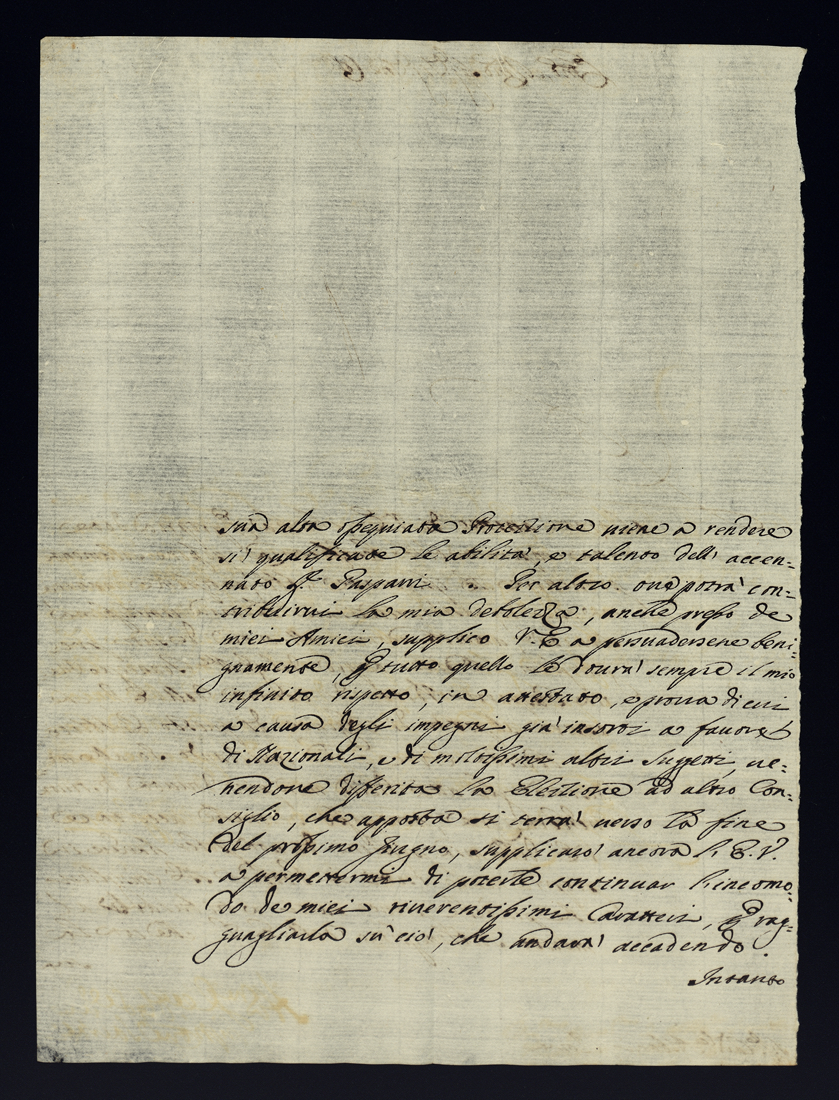 sua alta ossequiata Protezzione viene a rendere
si' qualificate le abilita', e talento dell' accen-
nato Sr. Gasparri. Per altro ove potra' con-
tribuirvi la mia debolezza, anche presso de
miei Amici supplico V. E. a persuadersene beni-
gnamente, p tutto quello le dovra' sempre il mio
infinito rispetto, in attestato, e prova di cui
a causa degli impegni gia' insorti a favore
di Nazionali, e di moltissimi altri suggetti, ve-
nendone differita la Elezione ad altro Con-
siglio, che apposta si terra' verso la fine
del prossimo Giugno, supplicaro' ancora l' E. V.
a permettermi di poterle continuar l' incomo-
do de miei riverentissimi Caratteri, p rag-
guagliarla su' cio', che andara' accadendo.
Intanto